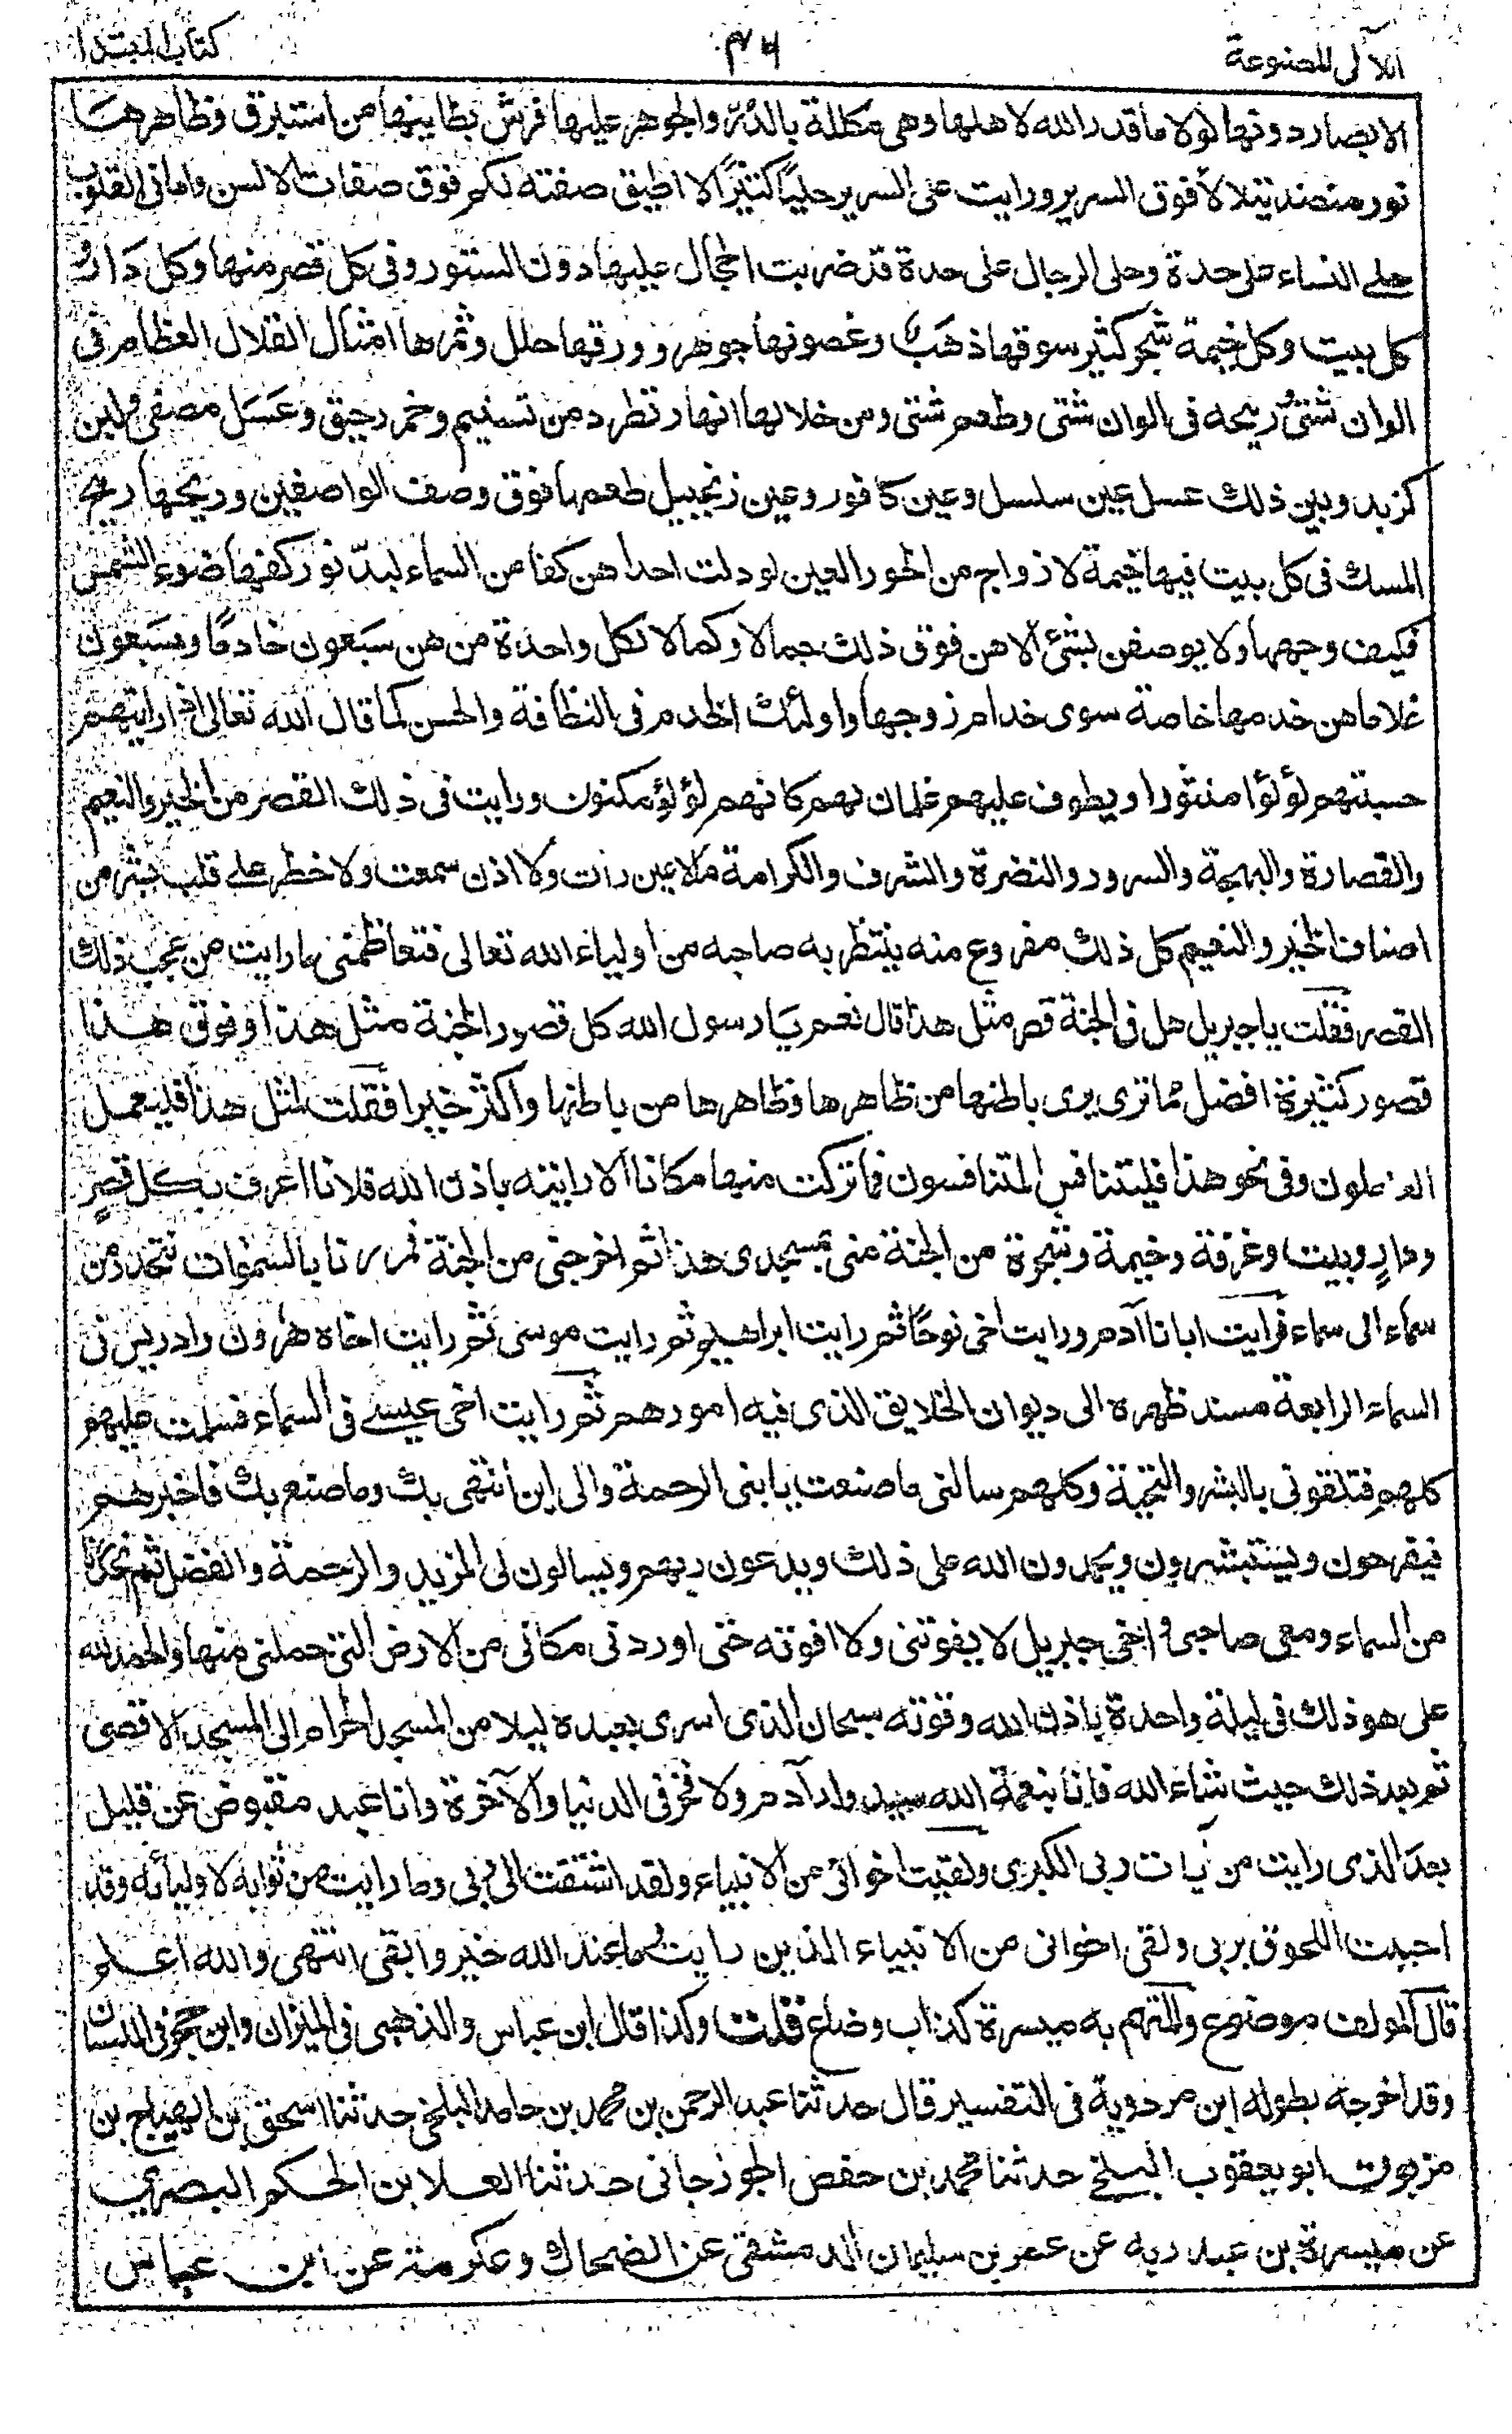 اللآلی المصنوعة
٤٦
کتاب المبتدا
الابصار دونها لولا ما قدر الله لاهلها وهی مکللة بالدر والجوهر علیها فرش بطاینها من استبرق وظاهرها
نور منضد یتلألأ فوق السریر ورایت علی السریر حلیًا کثیرًا لا اطیق صفته لکم فوق صفات الالسن وامانی القلوب
حلے النساء علی حدة وحلی الرجال علی حدة قد ضربت الحجال علیها دون الستور وفی کل قصر منها وکل دار و
کل بیت وکل خیمة شجر کثیر سوقها ذهب وغصونها جوهر وورقها حلل وثمرها امثال القلال العظام فی
الوان شتی ریحه فی الوان شتی وطعم شتی ومن خلالها انهار تطرد من تسنیم وخمر رحیق وعسل مصفی ولبن
کزبد وبین ذلك عسل عین سلسل وعین کافور وعین زنجبیل طعمها فوق وصف الواصفین وریحها ریح
المسك فی کل بیت فیها خیمة لازواج من الحور العین لو دلت احداهن کفا من السماء لبدّ نور کفها ضوء الشمس
فکیف وجهها ولا یوصفن بشئ الا هن فوق ذلك جمالا وکمالا لکل واحدة من هن سبعون خادمًا وسبعون
غلاما هن خدمها خاصة سوی خدام زوجها واولئك الخدم فی النظافة والحسن کما قال الله تعالی اذا رایتهم
حسبتهم لؤلؤا منثورا ویطوف علیهم غلمان لهم کانهم لؤلؤ مکنون ورایت فی ذلك القصر من الخیر والنعیم
والقصارة والبهجة والسرور والنضرة والشرف والکرامة ما لا عین رات ولا اذن سمعت ولا خطر علے قلب بشر من
اصناف الخیر والنعیم کل ذلك مفروع منه ینتظر به صاحبه من اولیاء الله تعالی فتعاظمنی ما رایت من عجب ذلك
القصر فقلت یا جبریل هل فی الجنة قصر مثل هذا قال نعم یا رسول الله کل قصور الجنة مثل هذا وفوق هذا
قصور کثیرة افضل مما تری یری باطنها من ظاهرها وظاهرها من باطنها واکثر خیرا فقلت لمثل هذا فلیعمل
العاملون وفی نحو هذا فلیتنافس المتنافسون فما ترکت منها مکانا الا رایته باذن الله فلانا اعرف بکل قصرٍ
ودارٍ وبیت وغرفة وخیمة وشجرة من الجنة منی بمسجدی هذا ثم اخرجنی من الجنة فمررنا بالسموات نتحدر من
سماء الی سماء فرایت ابانا آدم ورایت اخی نوحًا ثم رایت ابراهیم ثم رایت موسی ثم رایت اخاه هرون وادریس فی
السماء الرابعة مسند ظهره الی دیوان الخلایق الذی فیه امورهم ثم رایت اخی عیسے فی السماء فسلمت علیهم
کلهم فتلقونی بالبشر والتحیة وکلهم سالنی ما صنعت یا نبی الرحمة والی این انتهی بك وما صنع بك فاخبرهم
فیفرحون ویستبشرون ویحمدون الله علی ذلك ویدعون ربهم ویسالون لی المزید والرحمة والفضل ثم انحدرنا
من السماء ومعی صاحبی واخی جبریل لا یفوتنی ولا افوته حتی اوردنی مکانی من الارض التی حملنی منها والحمد لله
علی هو ذلك فی لیلة واحدة باذن الله وقوته سبحان الذی اسری بعبده لیلا من المسجد الحرام الی المسجد الاقصی
ثم بعد ذلك حیث شاء الله فانا بنعمة الله سید ولد آدم ولا فخر فی الدنیا والآخرة وانا عبد مقبوض عن قلیل
بعد الذی رایت من آیات ربی الکبری ولقیت اخوانی من الانبیاء ولقد اشتقت الی ربی وما رایت من ثوابه لاولیائه وقد
احببت اللحوق بربی ولقی اخوانی من الانبیاء الذین رایت وما عند الله خیر وابقی انتهی والله اعلم
قال المولف موضوع والمتهم به میسرة کذاب وضاع قلت وکذا قال ابن عباس والذهبی فی المیزان وابن حجر فی اللسان
وقد اخرجه بطوله ابن مردویة فی التفسیر قال حدثنا عبد الرحمن بن محمد بن حامد البلخی حدثنا اسحق بن الهیاج بن
ابو یعقوب البلخی حدثنا محمد بن حفص الجوزجانی حدثنا العلا بن الحکم البصری
عن میسرة بن عبد ربه عن عمر بن سلیمان الدمشقی عن الضحاك وعکرمة عن ابن عباس